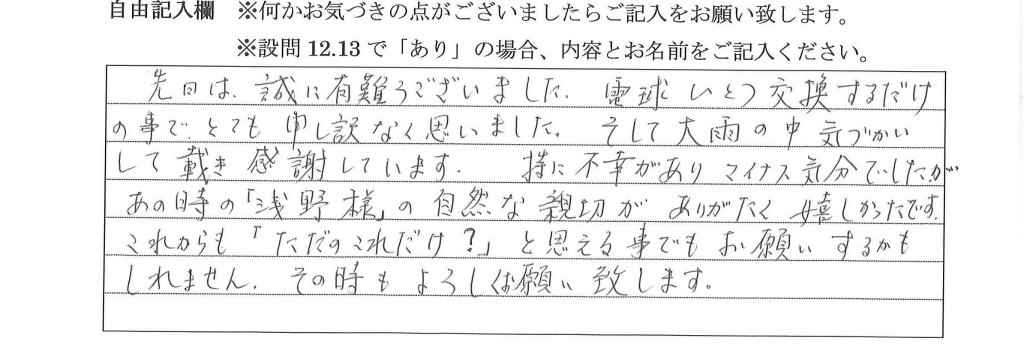 自由記入欄 ※何かお気づきの点がございましたらご記入をお願い致します。
※設問12.13で「あり」の場合、内容とお名前をご記入ください。
先日は、誠に有難うございました。電球ひとつ交換するだけ
の事で、とても申し訳なく思いました。そして大雨の中気づかい
して戴き感謝しています。 特に不幸がありマイナス気分でしたが
あの時の「浅野様」の自然な親切がありがたく嬉しかったです。
これからも「ただのこれだけ?」と思える事でもお願いするかも
しれません。その時もよろしくお願い致します。